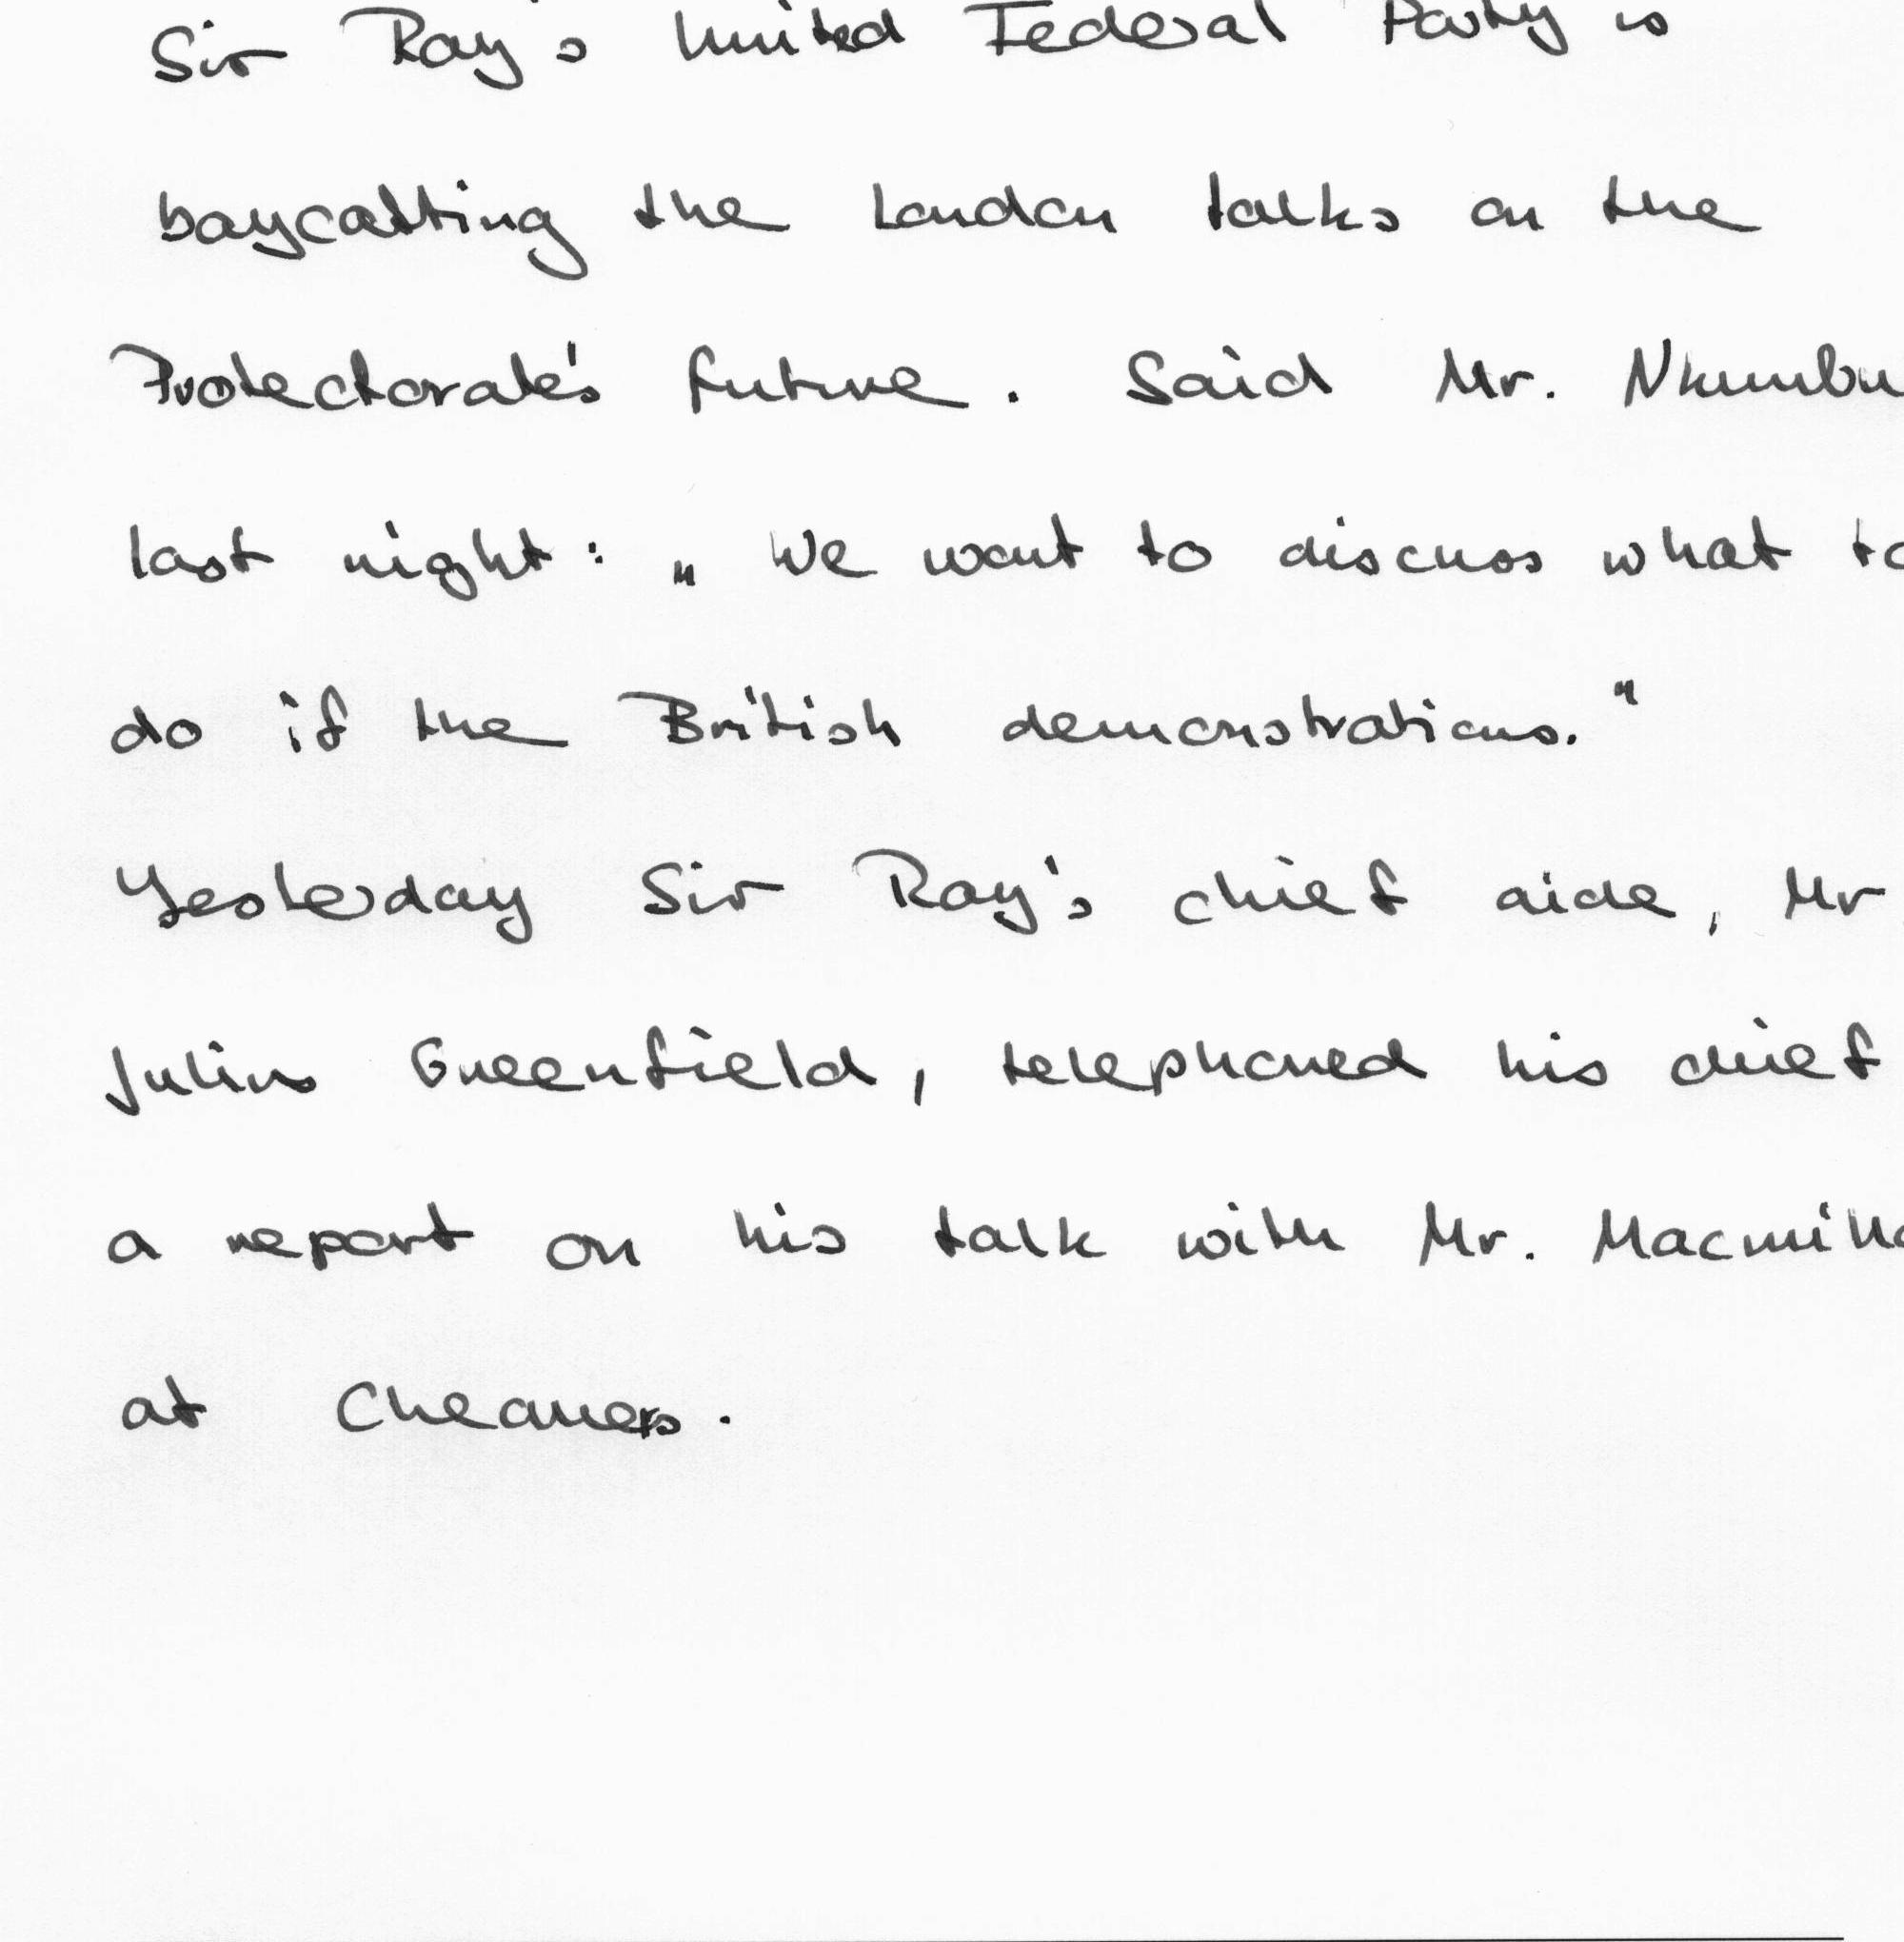 Sir Roy's United Federal Party is
boycotting the London talks on the
Protectorate's future. Said Mr. Nkumbu
last night: „We want to discuss what to
do if the British demonstrations."
Yesterday Sir Roy's chief aide, Mr
Julius Greenfield, telephoned his chief
a report on his talk with Mr. Macmilla
at